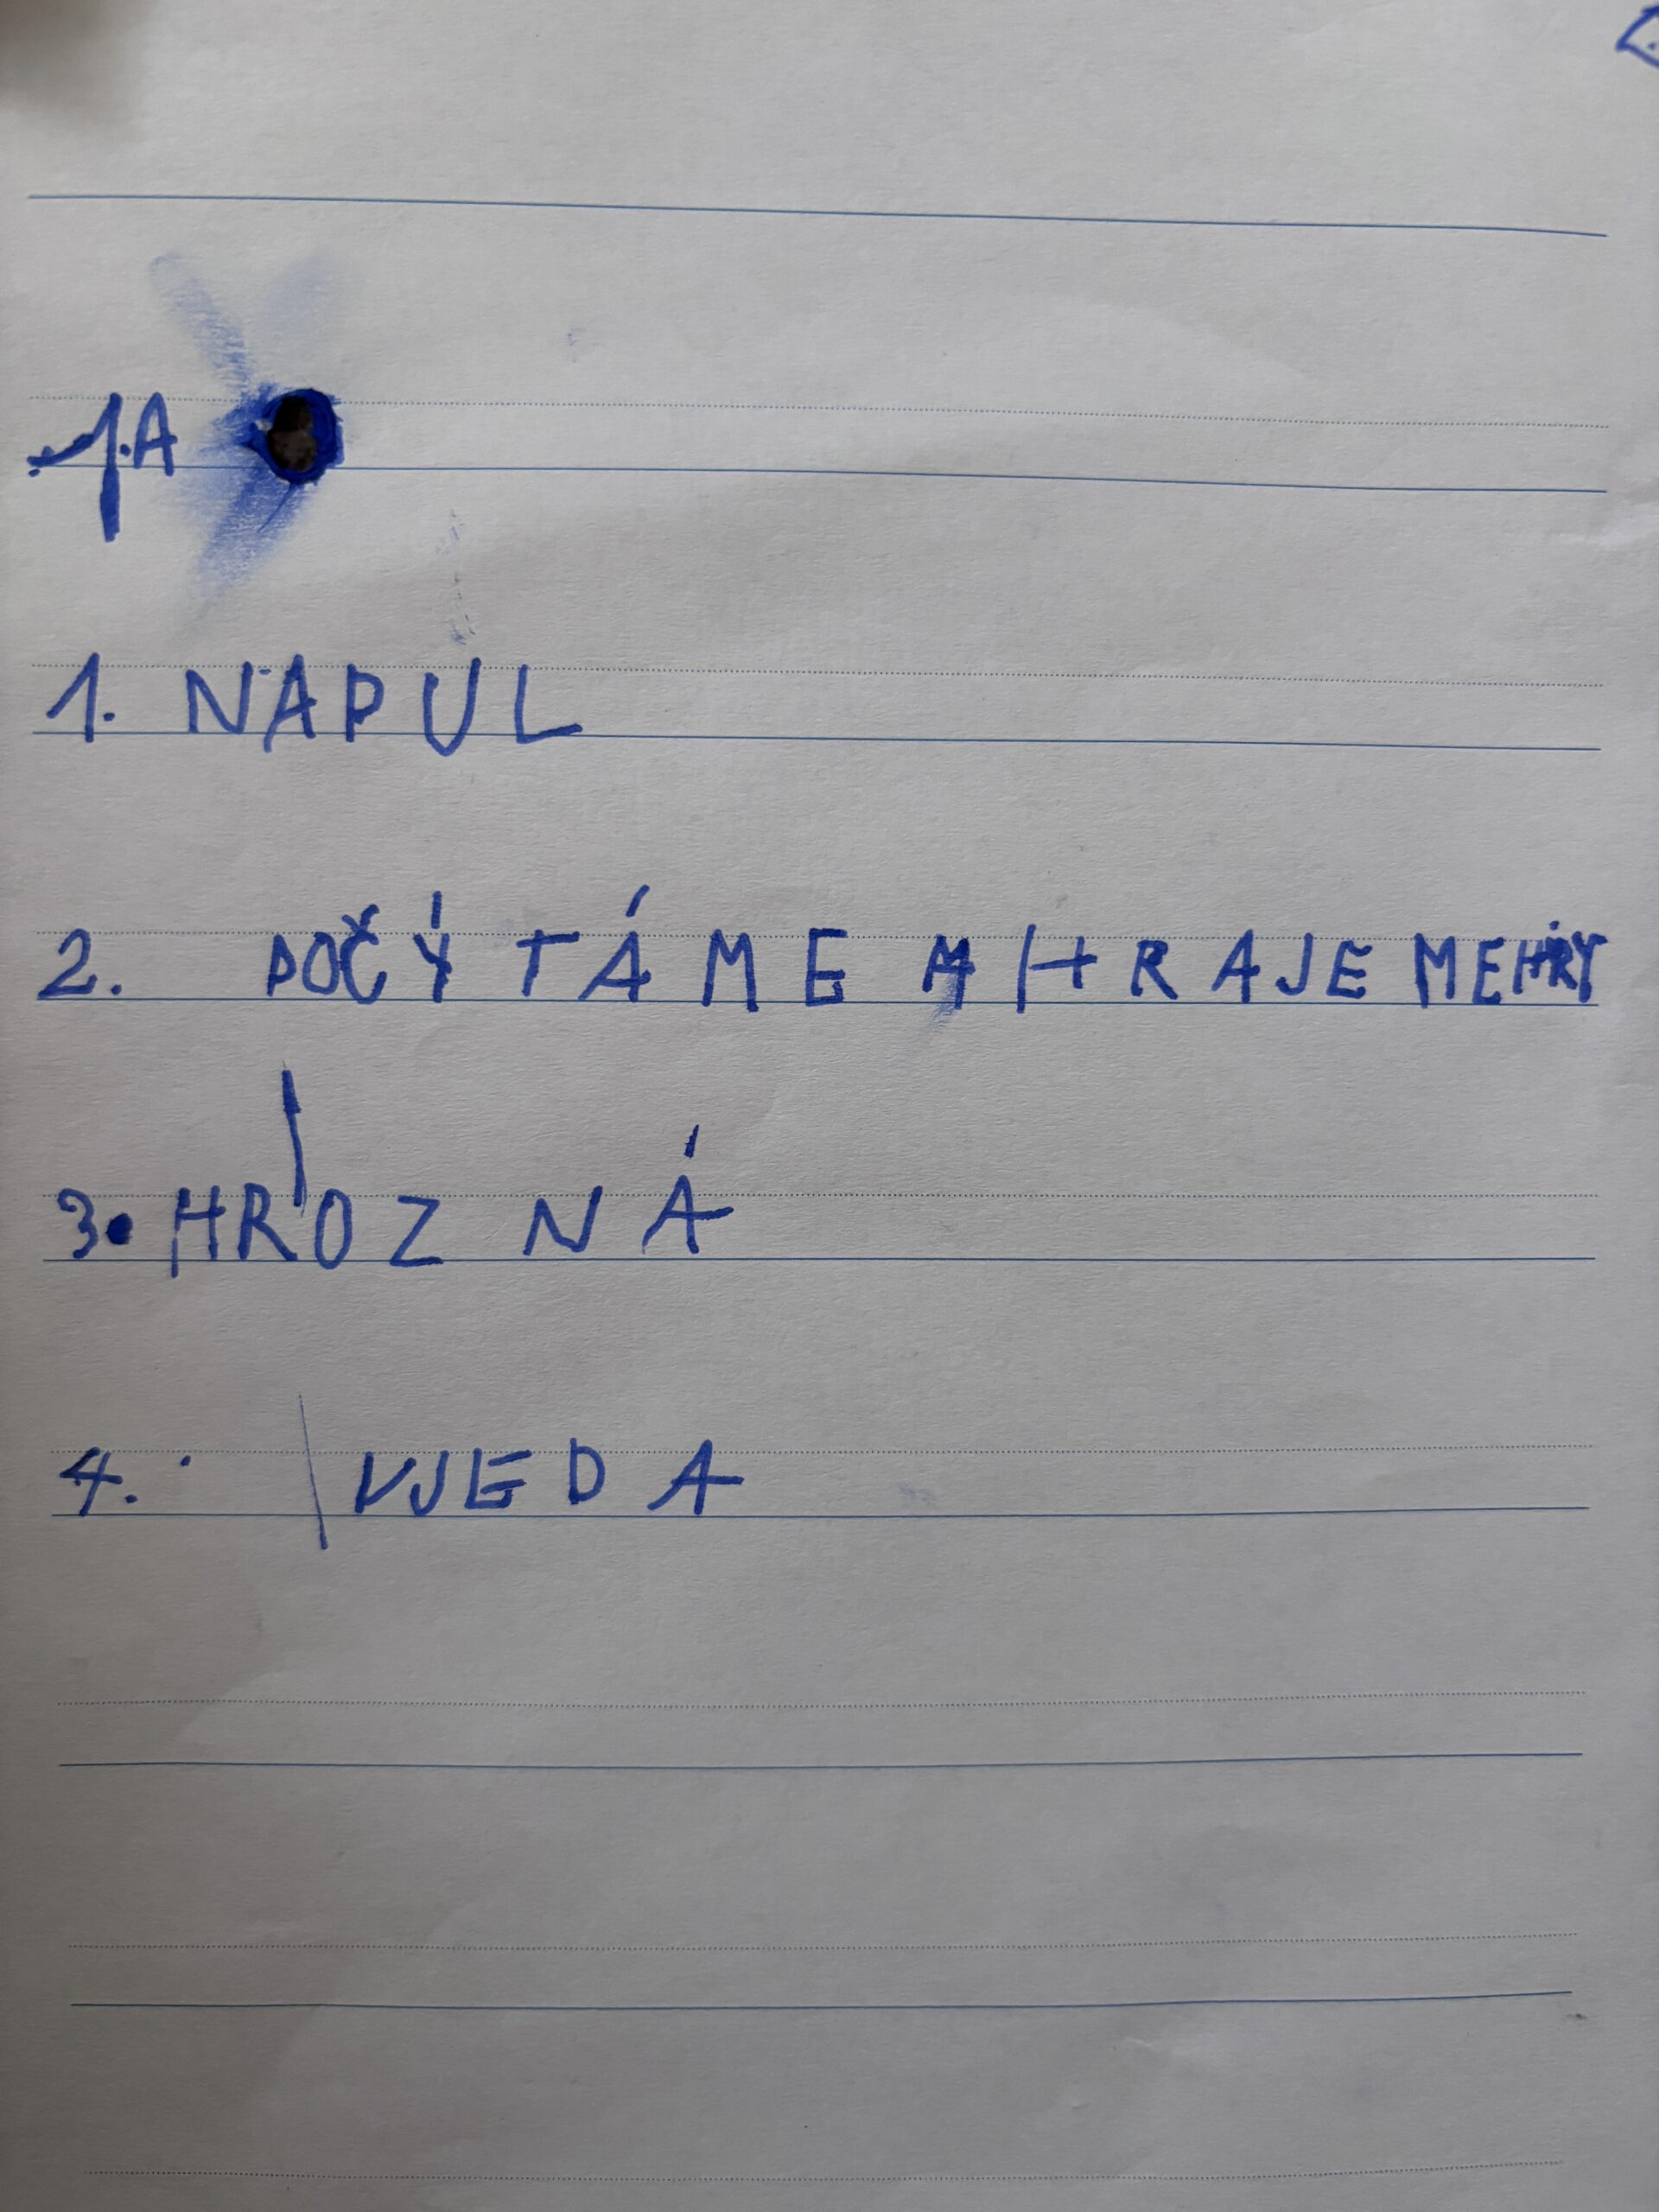 1.A
1. NAPUL
2. POČÝTÁME A HRAJEME HRY
3. HROZNÁ
4. VJEDA